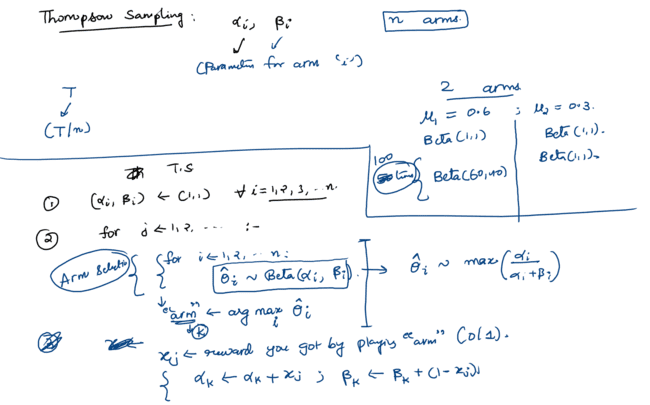 Thompson Sampling : αi, βi
n arms.
(Parameters for arm "i")
T
(T/n)
2 arms.
μ1 = 0.6 ; μ2 = 0.3.
Beta(1,1)
Beta(1,1).
Beta(1,1).
100
time
Beta(60,40)
T.S
① (αi, βi) ← (1,1) ∀ i = 1,2,3,...n.
② for j ← 1,2, ...... :-
Arm Selection
for i ← 1,2,...n:
θ̂i ~ Beta(αi, βi).
→ θ̂i ~ max(αi/(αi+βi))
"arm" ← arg max i θ̂i
k
xj ← reward you got by playing "arm" (0/1).
αk ← αk + xj ; βk ← βk + (1-xj);